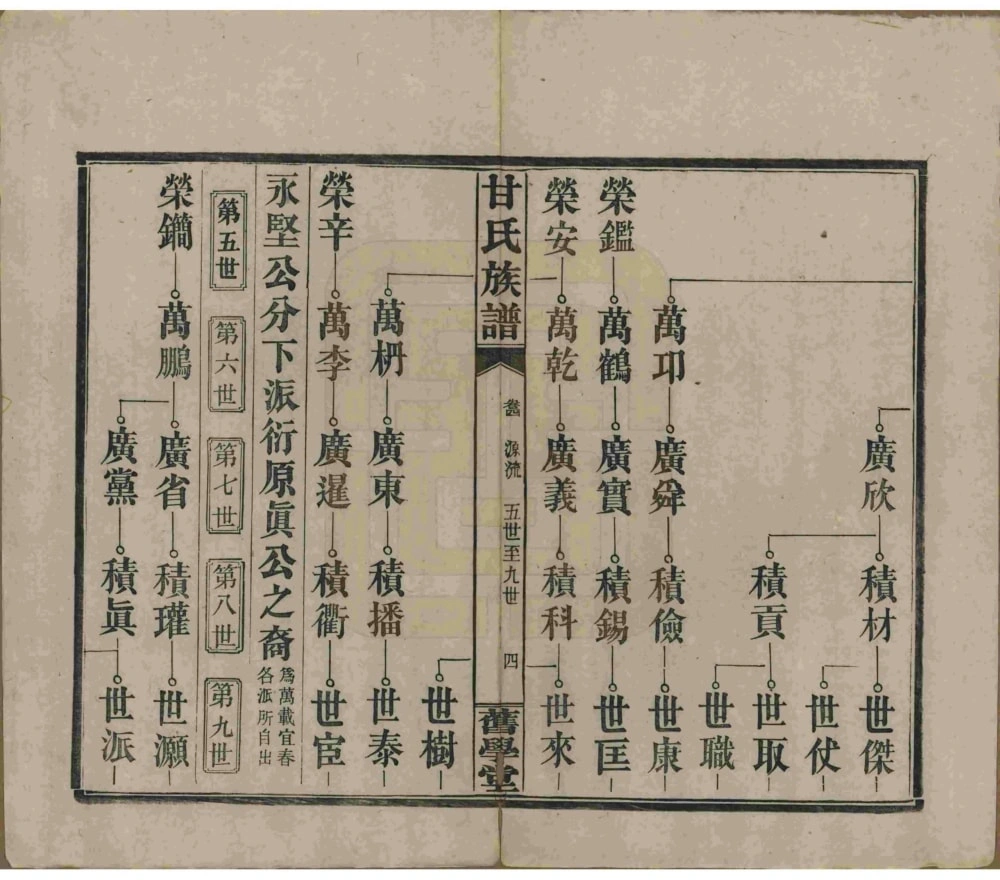 廣欣 積材 世傑
世仗
積貢 世取
世職
萬卭 廣舜 積儉 世康
榮鑑 萬鶴 廣實 積錫 世匡
榮安 萬乾 廣義 積科 世來
甘氏族譜 源流 五世至九世 四 舊學堂
世樹
萬枬 廣東 積播 世泰
榮辛 萬李 廣暹 積衢 世宦
永堅公分下派衍原眞公之裔 爲萬載宜春
各派所自出
第五世 第六世 第七世 第八世 第九世
榮鐗 萬鵬 廣省 積瓘 世灝
廣黨 積眞 世派